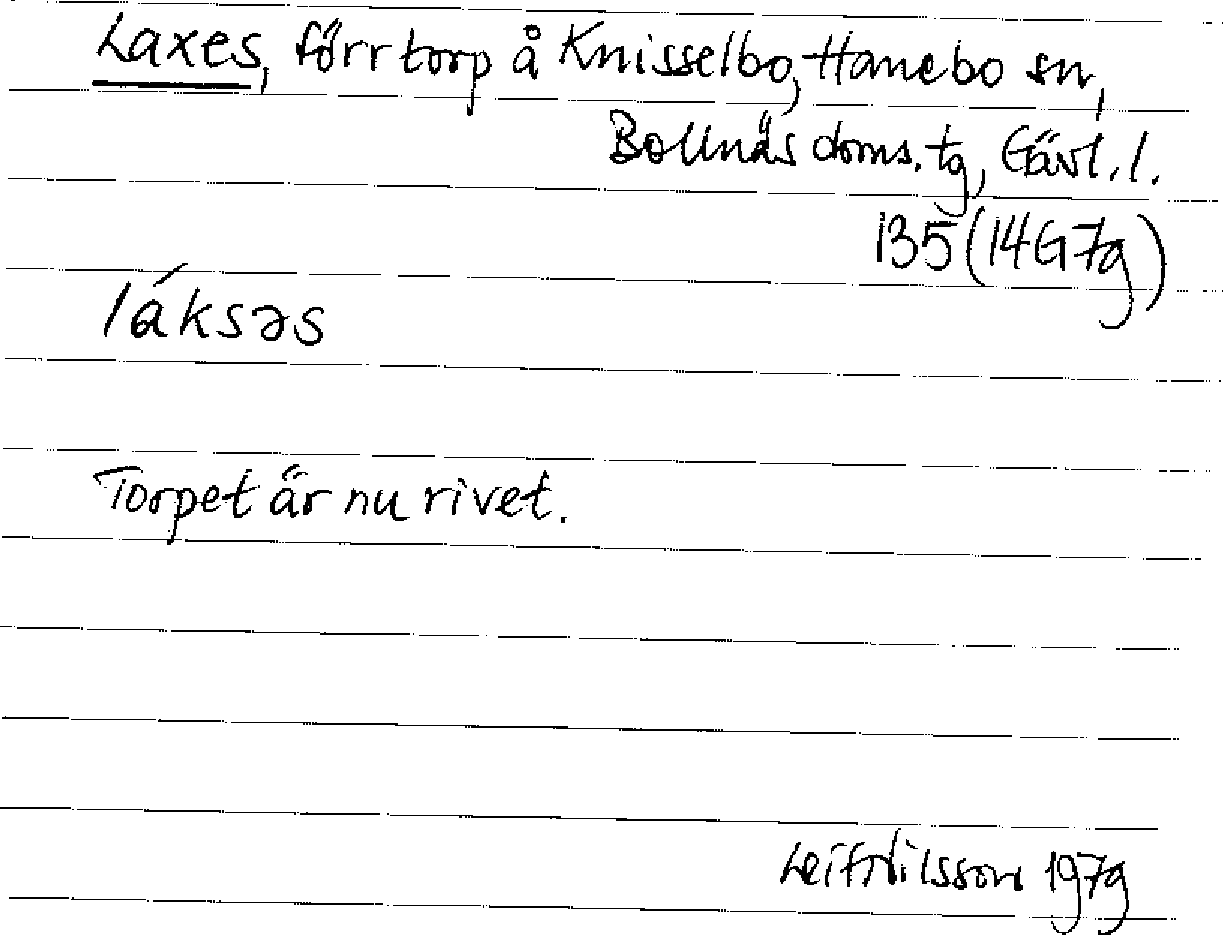 Laxes, förr torp å Knisselbo, Hanebo sn,
Bollnäs doms. tg, Gävl. l.
135 (14G7g)
láksəs
Torpet är nu rivet.
Leif Nilsson 1979